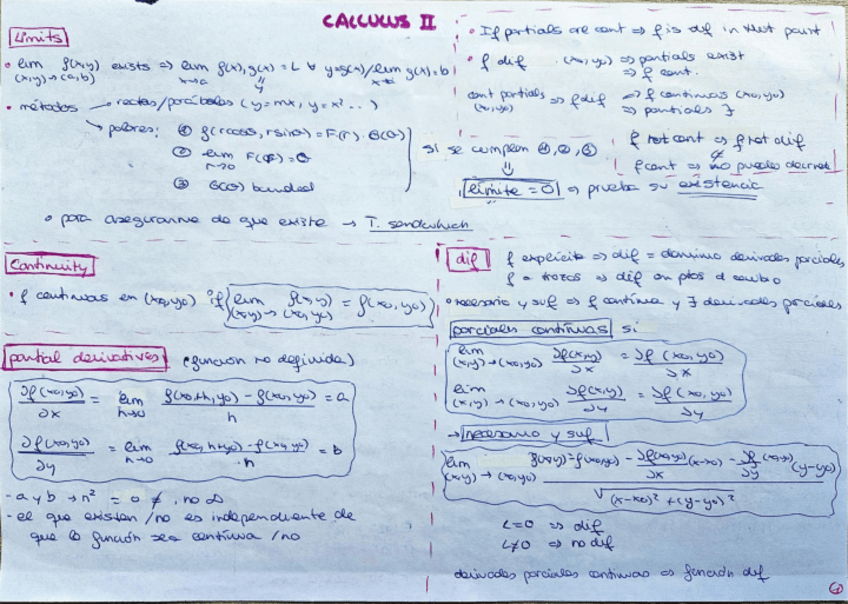 CALCULUS II
Limits
• lim f(x,y) exists => lim f(x), g(x) = L ∀ y=g(x) / lim g(x) = b
(x,y)→(a,b) x→a x→a
y
• métodos → rectas/parábolas (y=mx, y=x² ...)
→ polares: ① f(r cosθ, r sinθ) = F(r) · G(θ)
② lim F(r) = 0
r→0
③ G(θ) bounded
si se cumplen ①, ②, ③
⇓
límite = 0 => prueba su existencia
• para asegurarme de que existe → T. sandwhich
• If partials are cont => f is dif in that point
• f dif (x0, y0) => partials exist
=> f cont.
cont partials (x0, y0) => f dif => f continuas (x0, y0)
=> partials ∃
f not cont => f not dif
f cont => no puedes decir
Continuity
• f continuas en (x0, y0) if lim f(x,y) = f(x0, y0)
(x,y)→(x0, y0)
partial derivatives (función no definida)
∂f(x0, y0)/∂x = lim f(x0+h, y0) - f(x0, y0) / h = a
h→0
∂f(x0, y0)/∂y = lim f(x0, h+y0) - f(x0, y0) / h = b
h→0
- a y b → n² = 0 ≠, no ∞
- el que existan/no es independiente de
que la función sea continua/no
dif f explícita => dif = dominio derivadas parciales
f a trozos => dif en ptos d cambio
• necesario y suf => f continua y ∃ derivadas parciales
parciales continuas si
lim ∂f(x,y)/∂x = ∂f(x0, y0)/∂x
(x,y)→(x0, y0)
lim ∂f(x,y)/∂y = ∂f(x0, y0)/∂y
(x,y)→(x0, y0)
→ necesario y suf
lim f(x,y) - f(x0, y0) - ∂f(x0, y0)/∂x (x-x0) - ∂f(x0, y0)/∂y (y-y0) / √(x-x0)² + (y-y0)²
(x,y)→(x0, y0)
L=0 => dif
L≠0 => no dif
derivadas parciales continuas => función dif